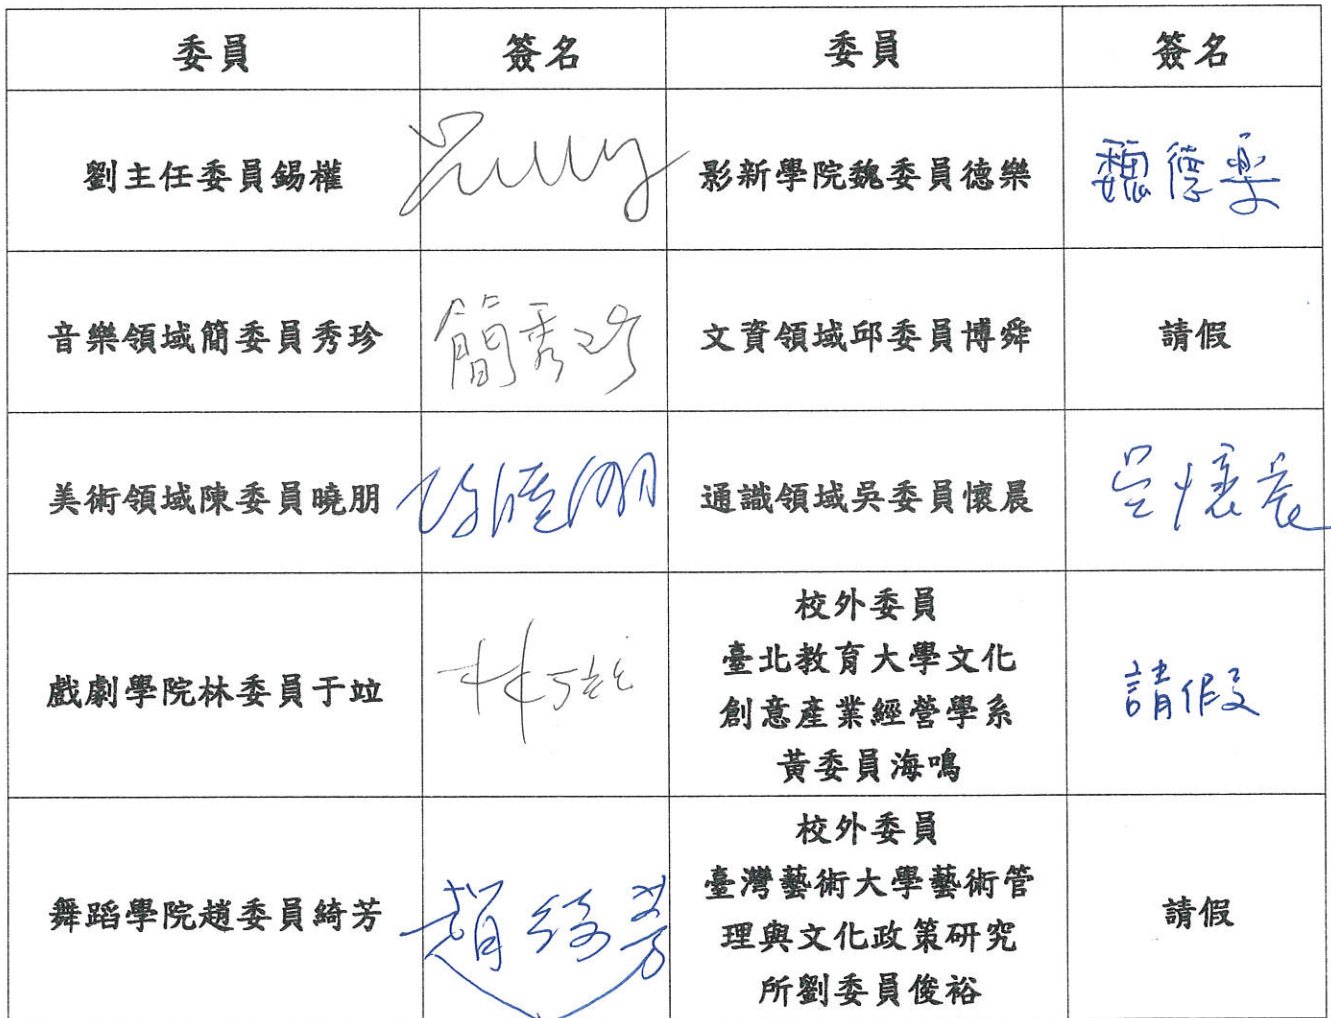 委員 簽名 委員 簽名
劉主任委員錫權 影新學院魏委員德樂 魏德樂
音樂領域簡委員秀珍 簡秀珍 文資領域邱委員博舜 請假
美術領域陳委員曉朋 陳曉朋 通識領域吳委員懷晨 吳懷晨
戲劇學院林委員于竝 林于竝
校外委員
臺北教育大學文化
創意產業經營學系
黃委員海鳴
請假
舞蹈學院趙委員綺芳 趙綺芳
校外委員
臺灣藝術大學藝術管
理與文化政策研究
所劉委員俊裕
請假